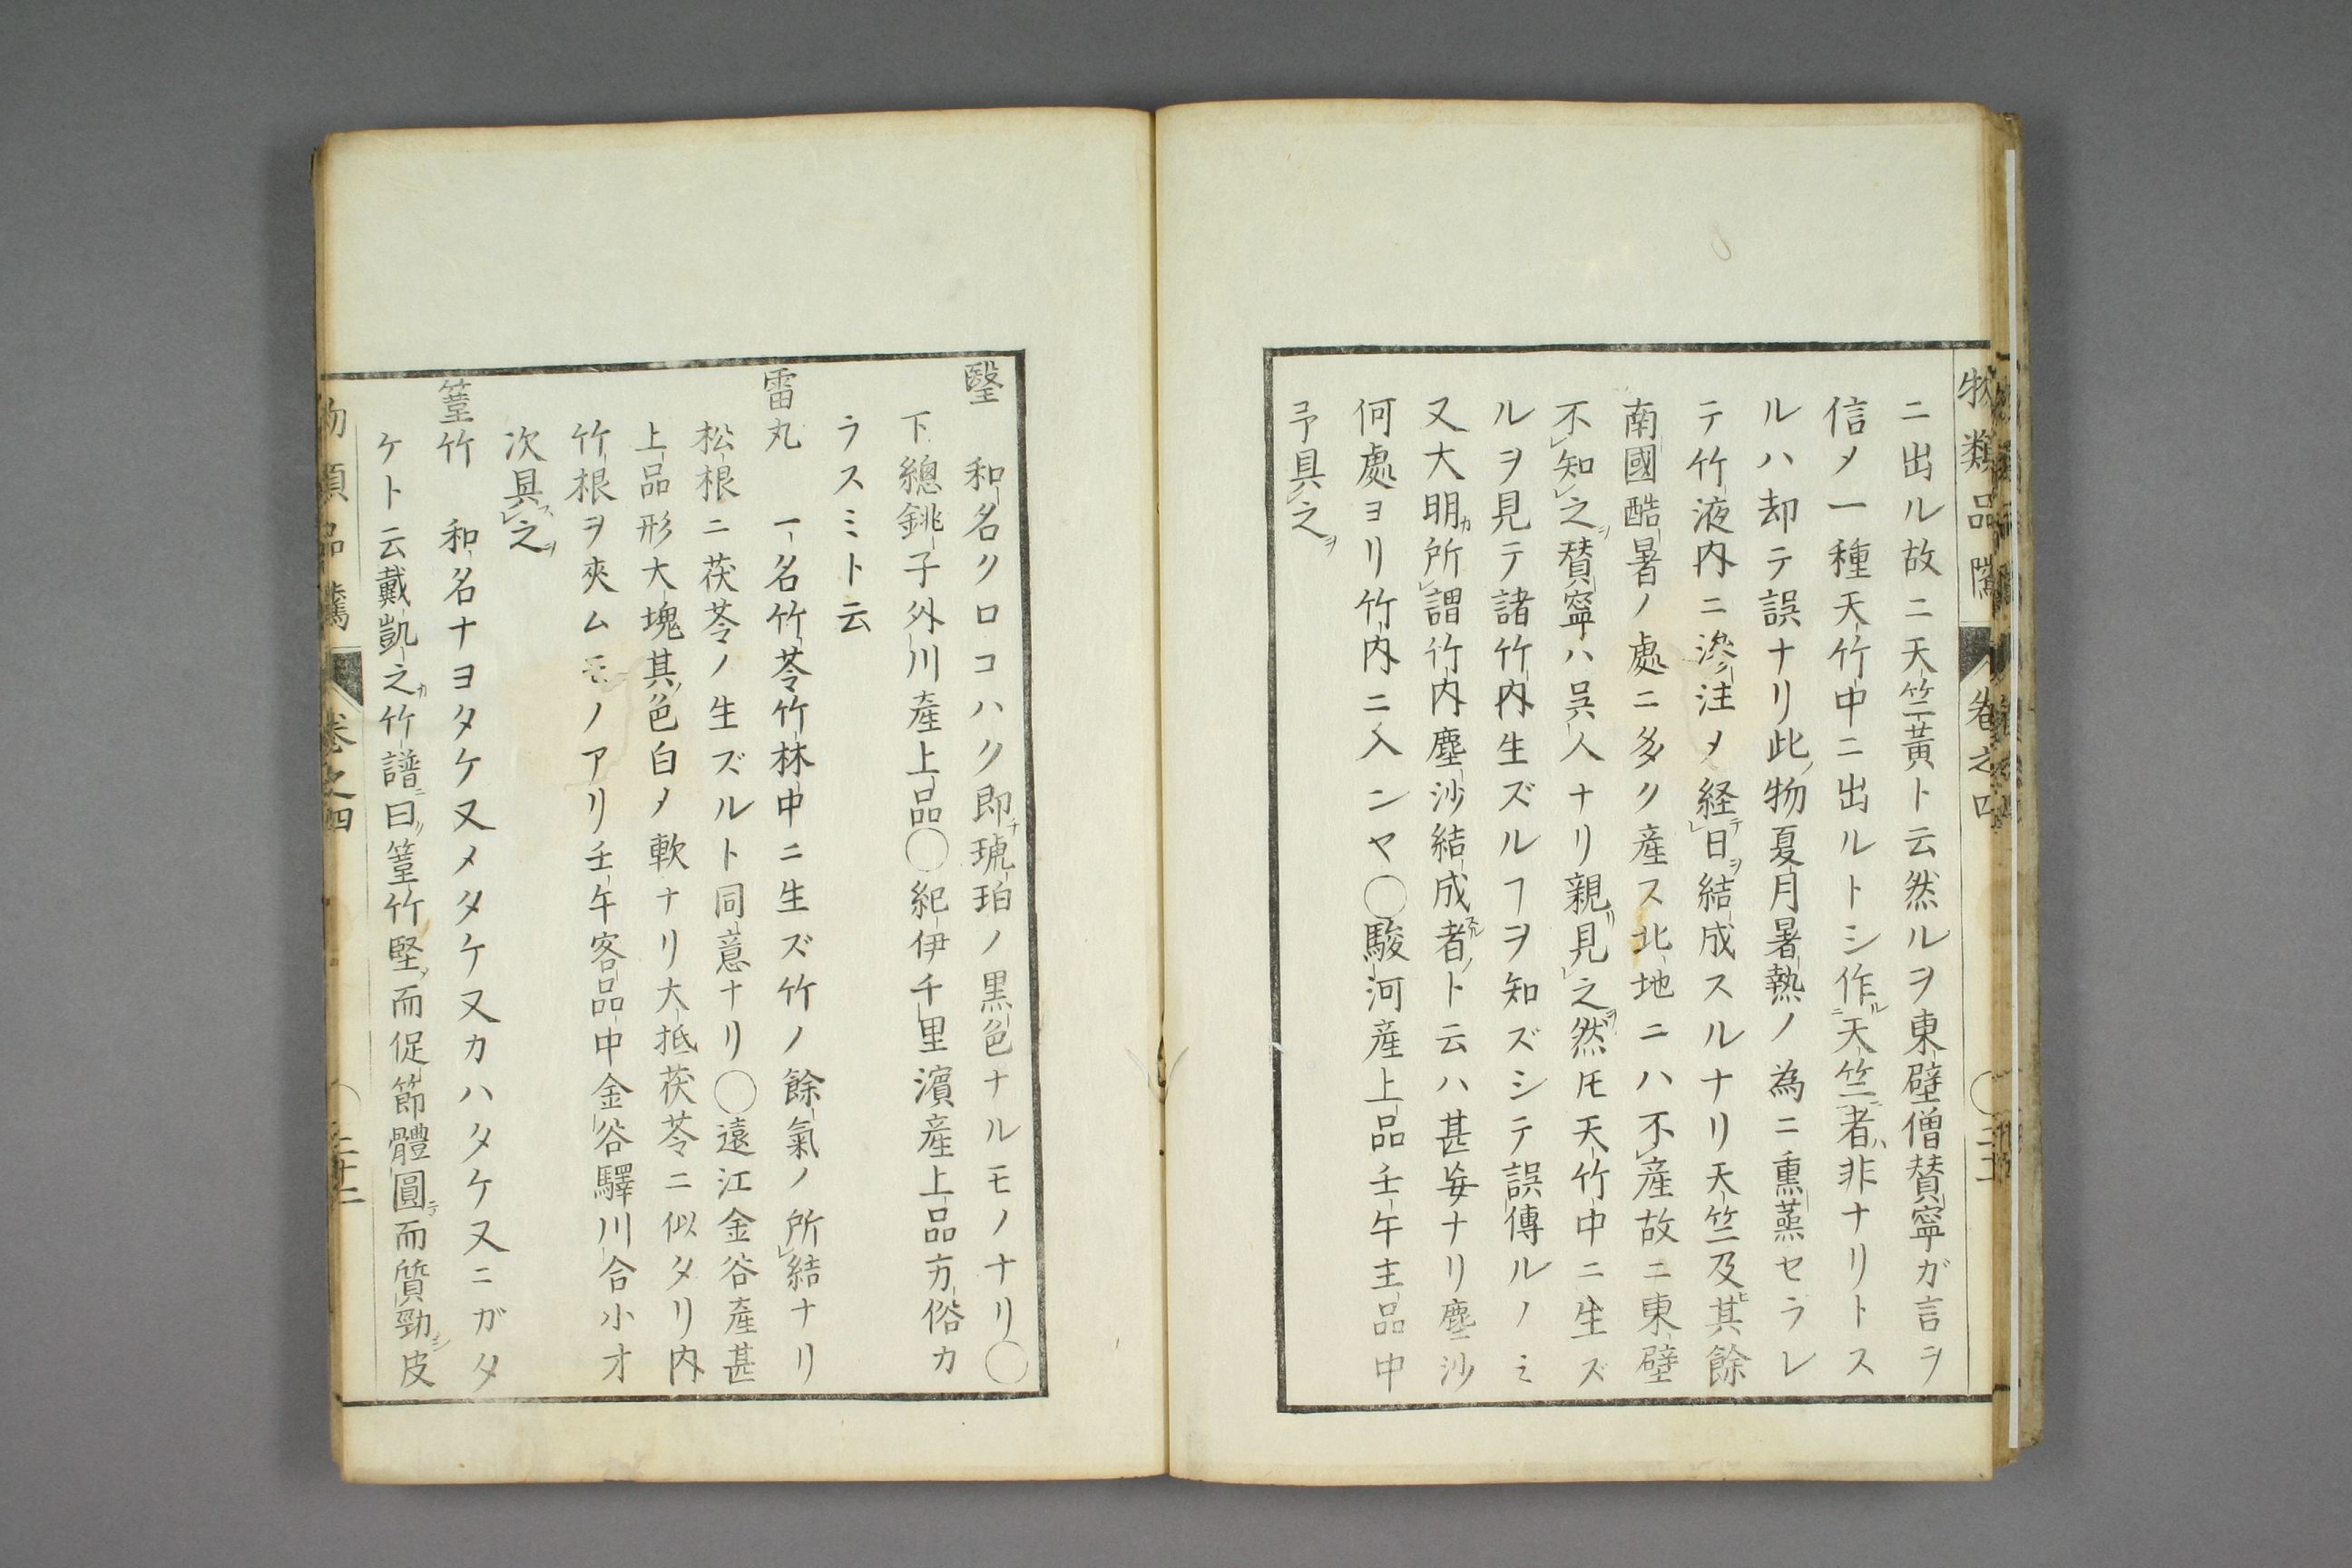 物類品隲 卷之四
ニ出ル故ニ天竺黃ト云然ルヲ東璧僧賛寧ガ言ヲ
信メ一種天竹中ニ出ルトシ作ルニ天竺ニ者ハ非ナリトス
ルハ却テ誤ナリ此ノ物夏月暑熱ノ為ニ熏蒸セラレ
テ竹液内ニ滲注メ経テ日ヲ結成スルナリ天竺及ヒ其餘
南國酷暑ノ處ニ多ク産ス北地ニハ不產故ニ東璧
不知之ヲ賛寧ハ呉人ナリ親リ見之ヲ然𪜈天竹中ニ生ズ
ルヲ見テ諸竹内生ズルヿヲ知ズシテ誤傳ルノミ
又大明カ所謂竹内塵沙結成スル者ノト云ハ甚妄ナリ塵沙
何處ヨリ竹内ニ入ンヤ〇駿河産上品壬午主品中
予具之ヲ
瑿 和名クロコハク即チ琥珀ノ黒色ナルモノナリ〇
下總銚子外川産上品〇紀伊千里濱産上品方俗カ
ラスミト云
雷丸 一名竹苓竹林中ニ生ズ竹ノ餘氣ノ所結ナリ
松根ニ茯苓ノ生ズルト同意ナリ〇遠江金谷産甚
上品形大塊其ノ色白メ軟ナリ大抵茯苓ニ似タリ内
竹根ヲ夾ムモノアリ壬午客品中金谷驛川合小才
次具ス之ヲ
䈠竹 和名ナヨタケ又メタケ又カハタケ又ニガタ
ケト云戴凱之カ竹譜ニ曰ク䈠竹堅メ而促節體圓テ而質勁シ皮
物類品隲 卷之四 二十二